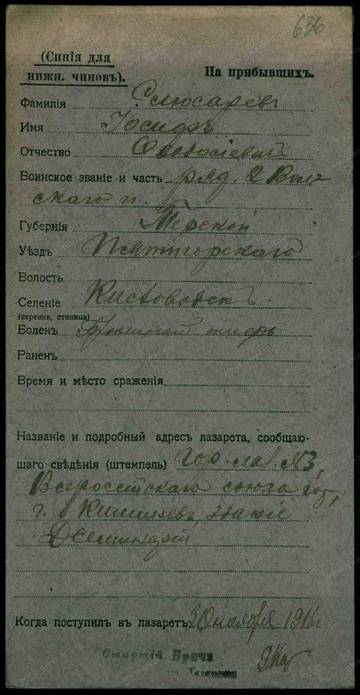 636
(Синія для
нижн. чиновъ).
На прибывшихъ.
Фамилія Слюсаревъ
Имя Іосифъ
Отчество
Воинское званіе и часть ряд. 2 Вол
скаго п.
Губернія Терской
Уѣздъ Пятигорскаго
Волость
Селеніе Кисловодскъ
(деревня, станица)
Боленъ Брюшной тифъ
Раненъ
Время и мѣсто сраженія
Названіе и подробный адресъ лазарета, сообщаю-
щаго свѣдѣнія (штемпель) Гор. лаз. №3
Всероссійскаго союза гор,
г. Кишиневъ, зданіе
Когда поступилъ въ лазаретъ 30 ноября 1916
Старшій Врачъ